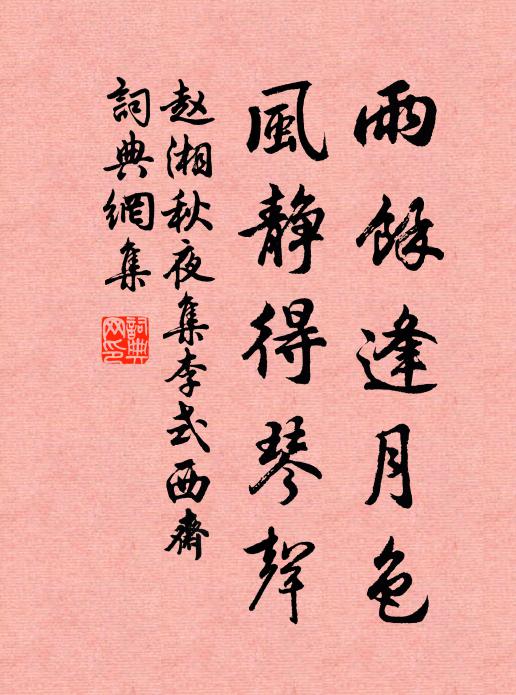 雨餘逢月色
風静得琴聲
赵湘秋夜集李式西齋
詞典網集
詞典網印